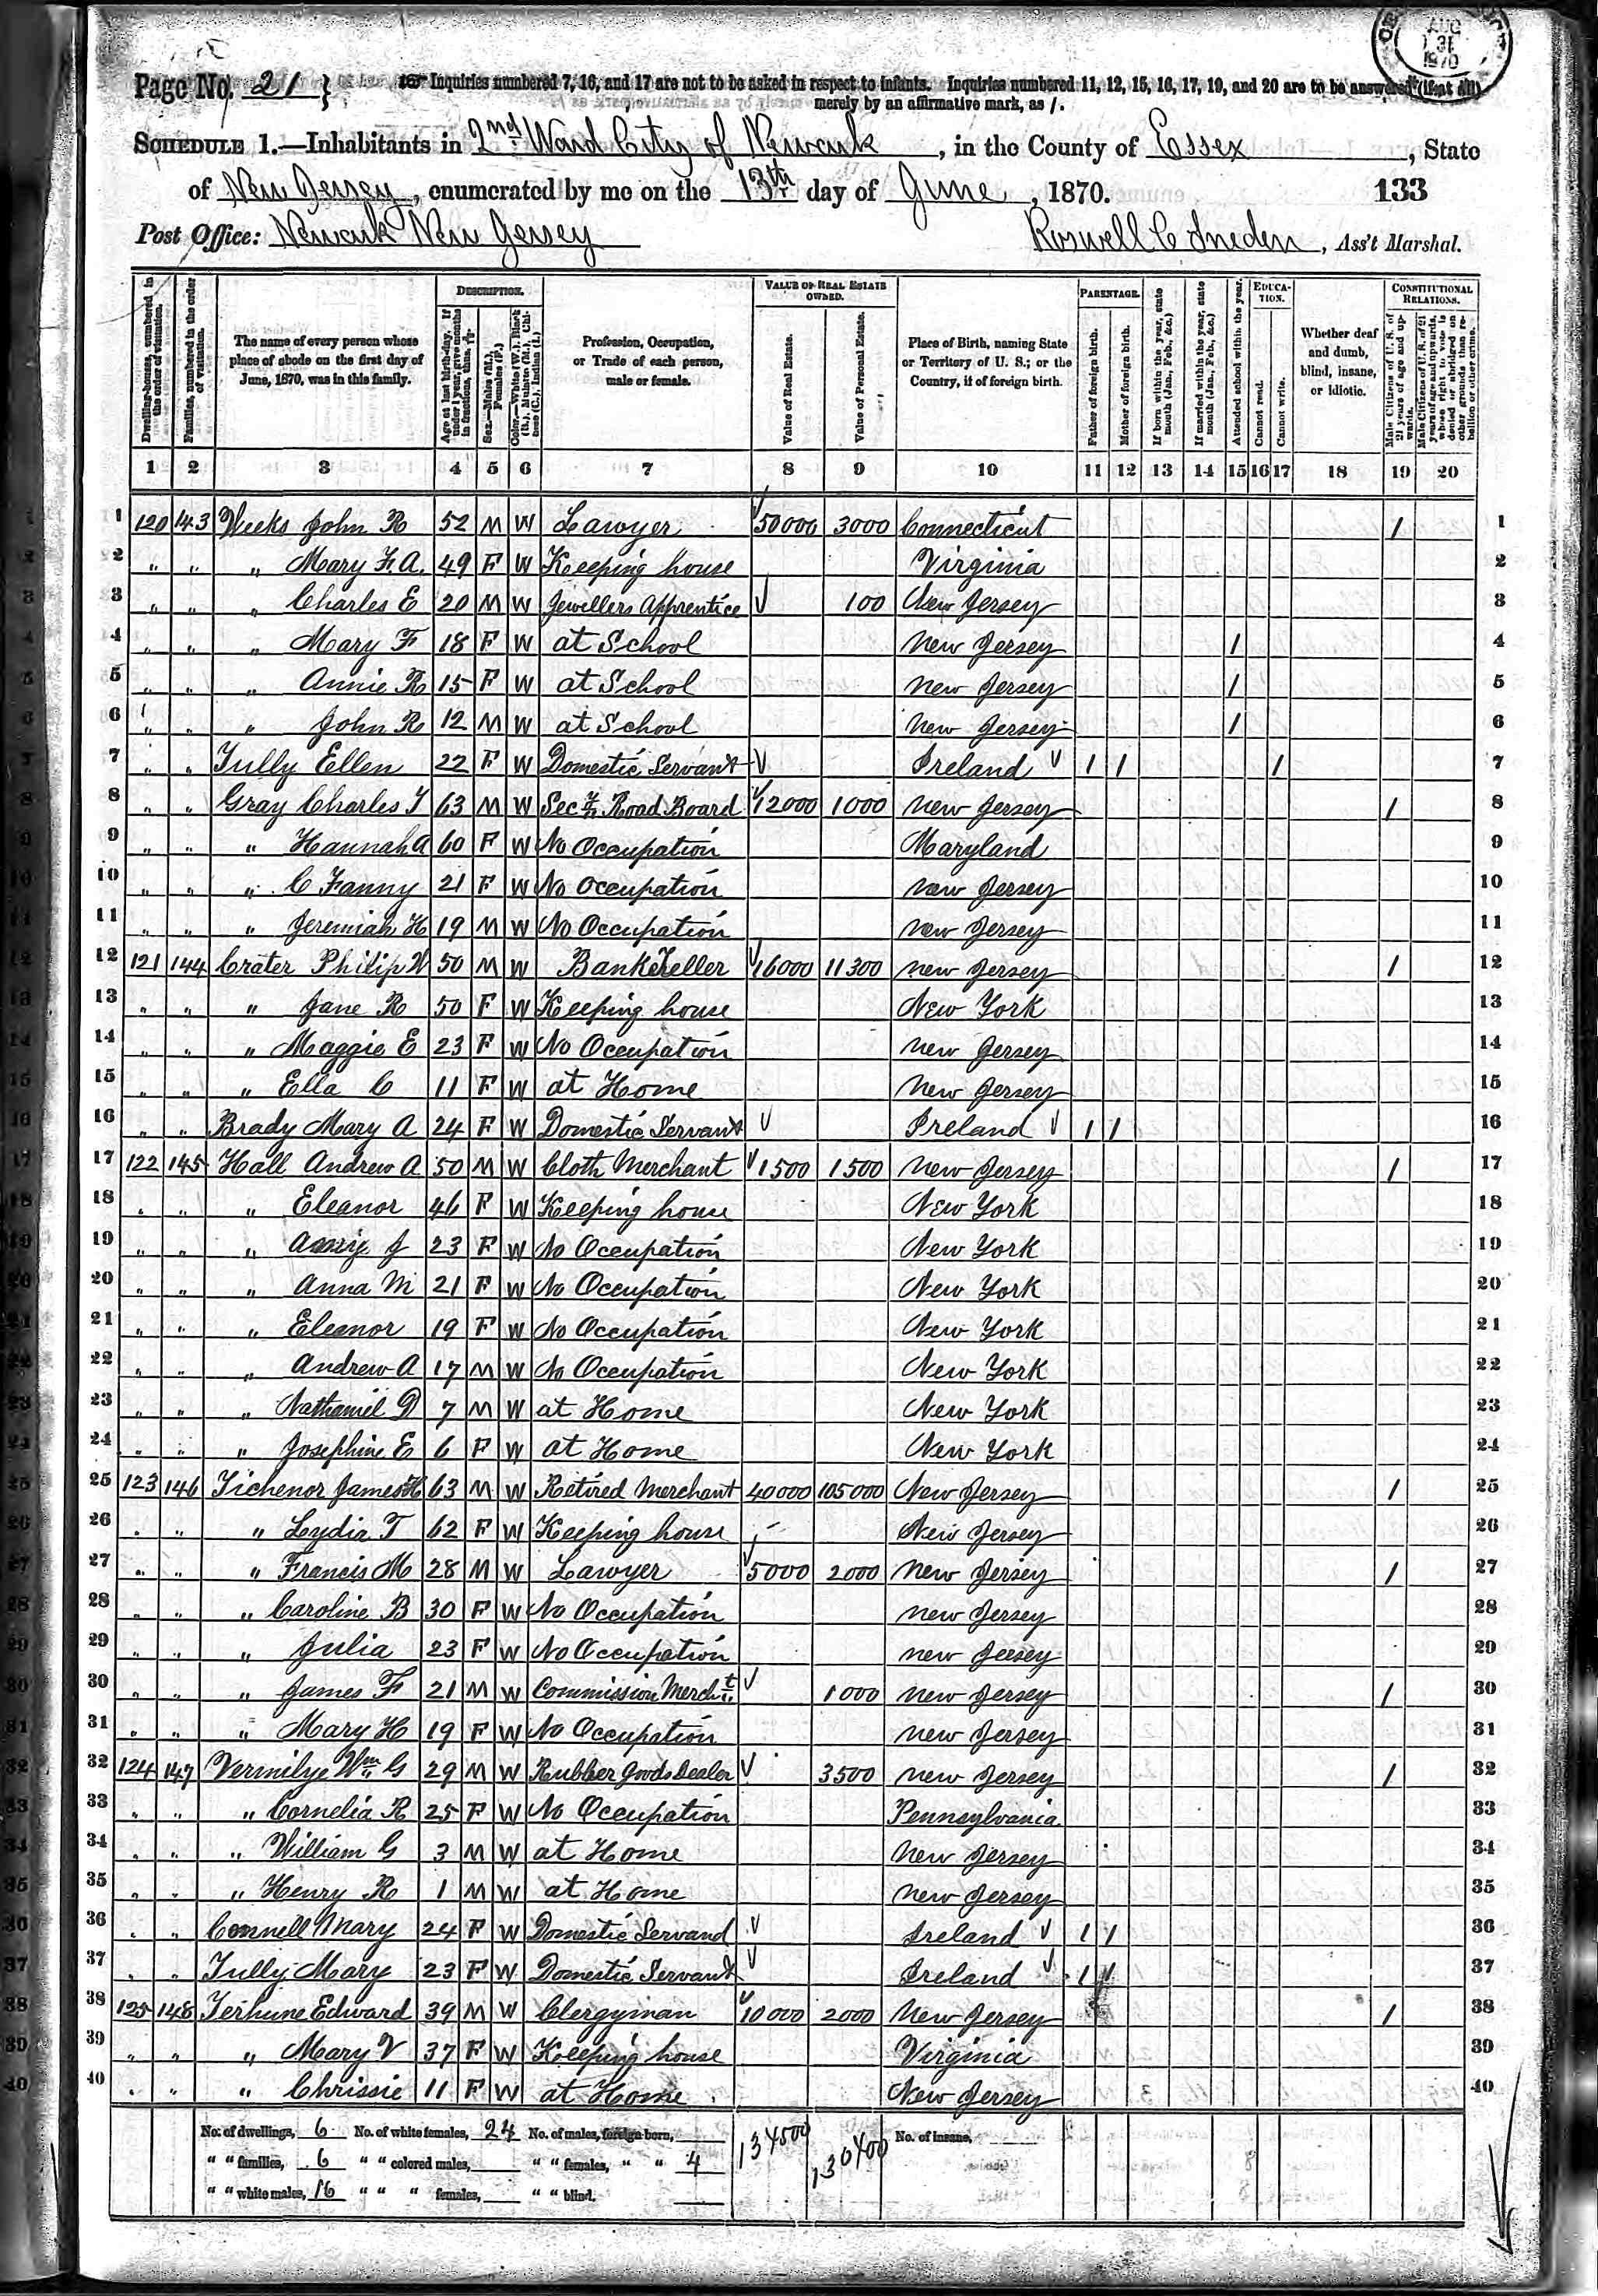 AUG 31 1870
Page No. 21 } Inquiries numbered 7, 16, and 17 are not to be asked in respect to infants. Inquiries numbered 11, 12, 15, 16, 17, 19, and 20 are to be answered (if at all)
merely by an affirmative mark, as /.
SCHEDULE 1.—Inhabitants in 2nd Ward City of Newark, in the County of Essex, State
of New Jersey, enumerated by me on the 13th day of June, 1870. 133
Post Office: Newark New Jersey Roswell C Sneden, Ass't Marshal.
Dwelling-houses, numbered in the order of visitation. Families, numbered in the order of visitation. The name of every person whose place of abode on the first day of June, 1870, was in this family. DESCRIPTION. Age at last birth-day. If under 1 year, give months in fractions, thus, Sex.—Males (M.), Females (F.) Color.—White (W.), Black (B.), Mulatto (M.), Chinese (C.), Indian (I.) Profession, Occupation, or Trade of each person, male or female. VALUE OF REAL ESTATE OWNED. Value of Real Estate. Value of Personal Estate. Place of Birth, naming State or Territory of U. S.; or the Country, if of foreign birth. PARENTAGE. Father of foreign birth. Mother of foreign birth. If born within the year, state month (Jan., Feb., &c.) If married within the year, state month (Jan., Feb., &c.) Attended school within the year. EDUCATION. Cannot read. Cannot write. Whether deaf and dumb, blind, insane, or idiotic. CONSTITUTIONAL RELATIONS. Male Citizens of U. S. of 21 years of age and upwards. Male Citizens of U. S. of 21 years of age and upwards, whose right to vote is denied or abridged on other grounds than rebellion or other crime.
1 2 3 4 5 6 7 8 9 10 11 12 13 14 15 16 17 18 19 20
1 120 143 Weeks John R 52 M W Lawyer 50000 3000 Connecticut / 1
2 " " " Mary F. A. 49 F W Keeping house Virginia 2
3 " " " Charles E 20 M W Jewellers Apprentice 100 New Jersey 3
4 " " " Mary F 18 F W at School New Jersey / 4
5 " " " Annie R 15 F W at School New Jersey / 5
6 " " " John R 12 M W at School New Jersey / 6
7 " " Tully Ellen 22 F W Domestic Servant Ireland / / / 7
8 " " Gray Charles T 63 M W Sec Road Board 12000 1000 New Jersey / 8
9 " " " Hannah A 60 F W No Occupation Maryland 9
10 " " " C Fanny 21 F W No Occupation New Jersey 10
11 " " " Jeremiah H 19 M W No Occupation New Jersey 11
12 121 144 Crater Philip W 50 M W Bank Teller 16000 11300 New Jersey / 12
13 " " " Jane R 50 F W Keeping house New York 13
14 " " " Maggie E 23 F W No Occupation New Jersey 14
15 " " " Ella C 11 F W at Home New Jersey 15
16 " " Brady Mary A 24 F W Domestic Servant Ireland / / 16
17 122 145 Hall Andrew A 50 M W Cloth Merchant 1500 1500 New Jersey / 17
18 " " " Eleanor 46 F W Keeping house New York 18
19 " " " J 23 F W No Occupation New York 19
20 " " " Anna M 21 F W No Occupation New York 20
21 " " " Eleanor 19 F W No Occupation New York 21
22 " " " Andrew A 17 M W No Occupation New York 22
23 " " " Nathaniel D 7 M W at Home New York 23
24 " " " Josephine E 6 F W at Home New York 24
25 123 146 Tichenor James H 63 M W Retired Merchant 40000 105000 New Jersey / 25
26 " " " Lydia T 62 F W Keeping house New Jersey 26
27 " " " Francis M 28 M W Lawyer 5000 2000 New Jersey / 27
28 " " " Caroline B 30 F W No Occupation New Jersey 28
29 " " " Julia 23 F W No Occupation New Jersey 29
30 " " " James F 21 M W Commission Mercht 1000 New Jersey / 30
31 " " " Mary H 19 F W No Occupation New Jersey 31
32 124 147 Vermilye Wm G 29 M W Rubber Goods Dealer 3500 New Jersey / 32
33 " " " Cornelia R 25 F W No Occupation Pennsylvania 33
34 " " " William G 3 M W at Home New Jersey 34
35 " " " Henry R 1 M W at Home New Jersey 35
36 " " Connell Mary 24 F W Domestic Servand Ireland / / 36
37 " " Tully Mary 23 F W Domestic Servant Ireland / / 37
38 125 148 Terhune Edward 39 M W Clergyman 10000 2000 New Jersey / 38
39 " " " Mary V 37 F W Keeping house Virginia 39
40 " " " Chrissie 11 F W at Home New Jersey 40
No. of dwellings, 6 No. of white females, 24 No. of males, foreign born, 134500 130400 No. of insane,
" " families, 6 " " colored males, " " females, " " 4
" " white males, 16 " " " females, " " blind.